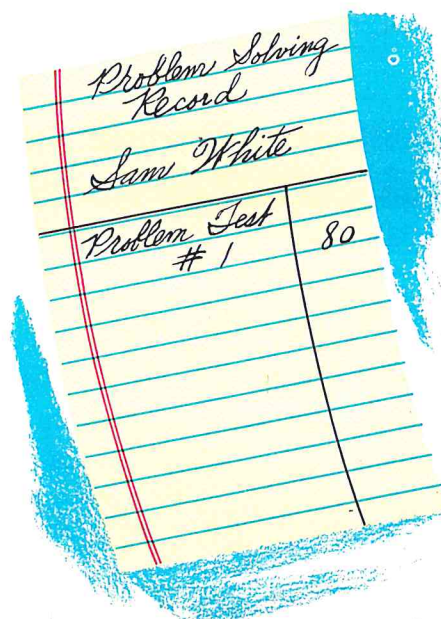 Problem Solving
Record
Sam White
Problem Test 80
# 1